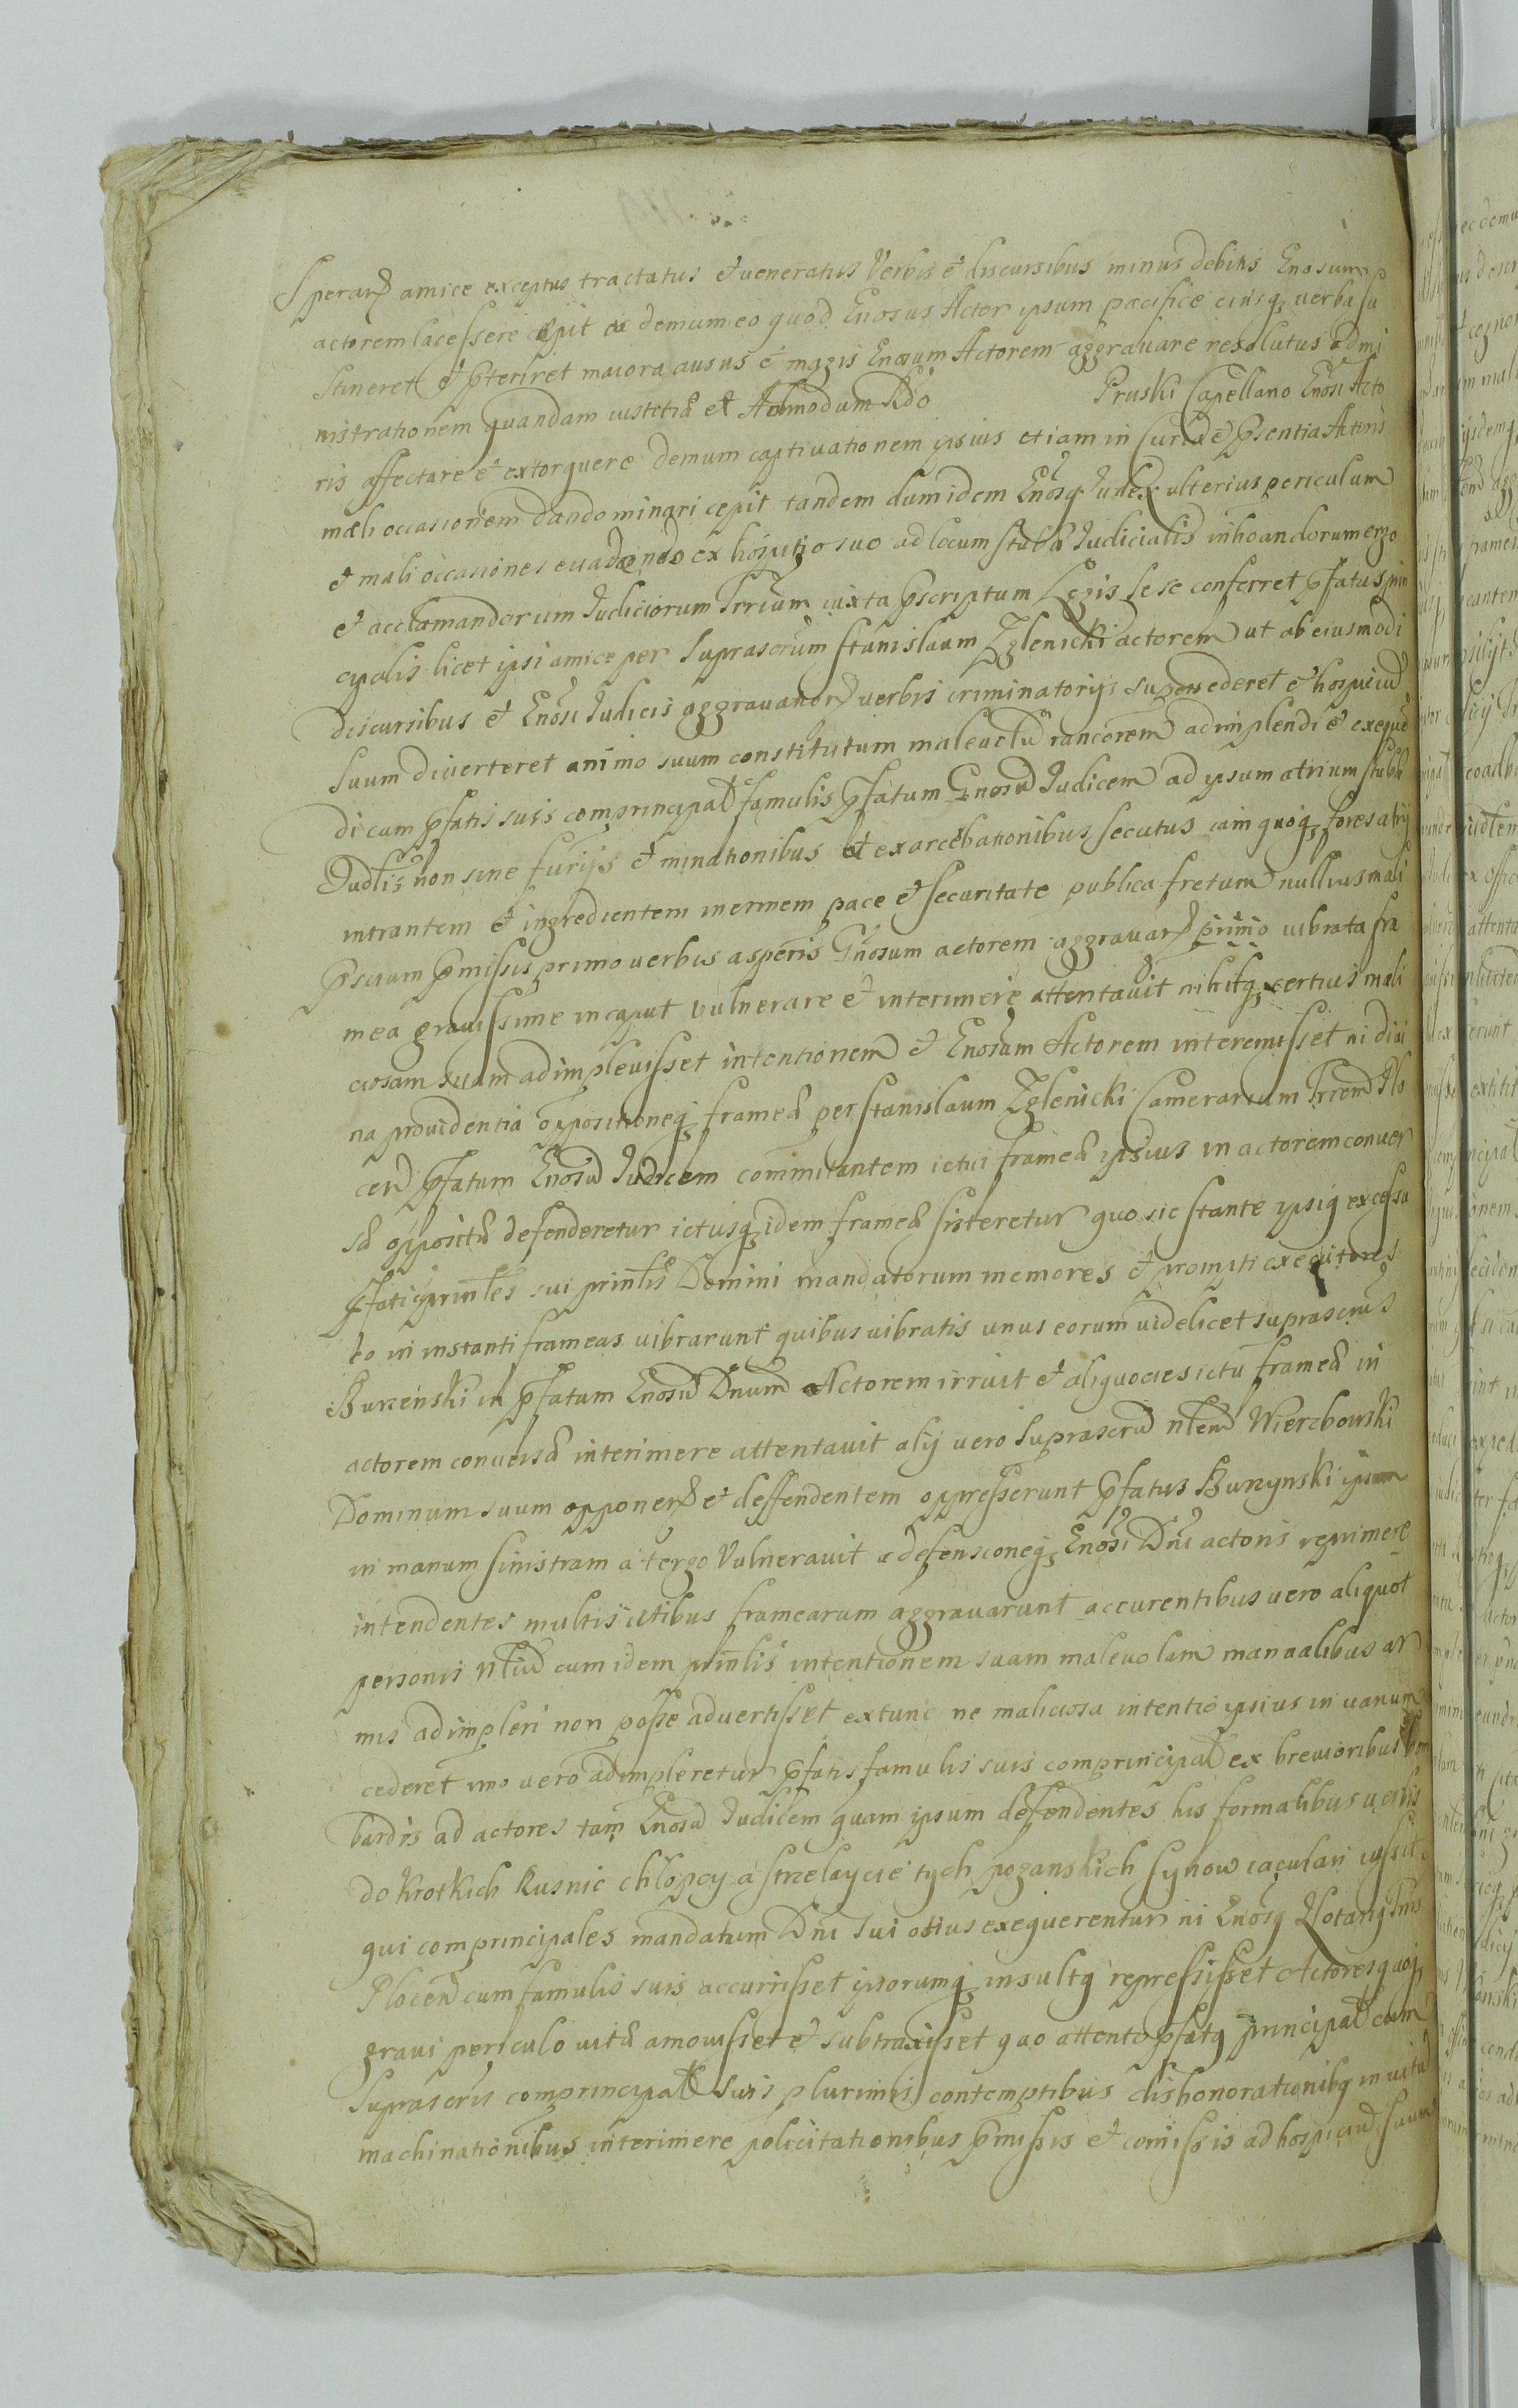 Speran amice exceptus tractatus et veneratus Verbis et discursibus minus debitis Gnosum
actorem lacessere cepit ac demum eo quod Gnosus Actor ipsum pacifice eiusq verba su
stineret et pteriret maiora ausus et magis Gnosum Actorem aggravare resolutus admi
nistrationem quandam iustitiæ et Admodum Rdo Pruski Capellano Gnosi Acto
ris affectare et extorquere demum captivationem ipsius etiam in Curia et psentia Actoris
mali occasionem dando minari cepit tandem dum idem Gnosq Iudex ulterius periculum
et mali occasiones evadendo ex hospitio suo ad locum stubæ Iudicialis inhoandorum ergo
et acclamandorum Iudiciorum Trrium iuxta pscriptum Legis sese conferret pfatus prin
cipalis licet ipsi amice per suprascrum Stanislaum Zglenicki actorem ut ab eiusmodi
discursibus et Gnosi Iudicis aggravation verbis criminatorijs supersederet et hospitiu
suum diverteret animo suum constitutum malevolu rancorem adimplendi et exequen
di cum pfatis suis comprincipal famulis pfatum Gnosu Iudicem ad ipsum atrium stubæ
Iudlis non sine furijs et minationibus et exarcebationibus secutus iam quoq fores atrij
intrantem et ingredientem inermem pace et securitate publica fretum nullius mali
pscium pmissis primo verbis asperis Gnosum actorem aggravan primo vibrata fra
mea gravissime in caput vulnerare et interimere attentavit nihilq certius mali
ciosam suam adimplevisset intentionem et Gnosum Actorem interemisset ni divi
na providentia oppositioneq frameæ per Stanislaum Zglenicki Camerarium Trrem Plo
cen pfatum Gnosu Iudicem commitantem ictui frameæ ipsius in actorem conver
sæ oppositæ defenderetur ictusq idem frameæ sisteretur quo sic stante ipsiq excessu
pfati comprinles sui prinlis Domini mandatorum memores et prompti executores
eo in instanti frameas vibrarunt quibus vibratis unus eorum videlicet suprascrus
Burzenski in pfatum Gnosu Dnum Actorem irruit et aliquocies ictu frameæ in
actorem conversæ interimere attentavit alij vero suprascru nlem Wierzbowski
Dominum suum opponen et deffendentem oppresserunt pfatus Burzynski ipsum
in manum sinistram a tergo vulneravit a defensioneq Gnosi Dni actoris reprimere
intendentes multis ictibus framearum aggravarunt accurentibus vero aliquot
personis nliu cum idem prinlis intentionem suam malevolam manualibus ar
mis adimpleri non posse advertisset extunc ne maliciosa intentio ipsius in vanum
cederet imo vero adimpleretur pfatis famulis suis comprincipal ex brevioribus bom
bardis ad actores tam Gnosu Iudicem quam ipsum defendentes his formalibus verbis
do krotkich Rusnic chlopcy a strzelaycie tych poganskich synow iaculari iussit
qui comprincipales mandatum Dni sui otius exequerentur ni Gnosq Notariq Trris
Plocen cum famulis suis accurrisset ipsorumq insultq repressisset Actoresquoq
gravi periculo vitæ amovisset et subtraxisset quo attento pfatq principal cum
suprascris comprincipal suis plurimis contemptibus dishonorationibq in vita
machinationibus interimere policitationibus pmissis et comissis ad hospiciu suum